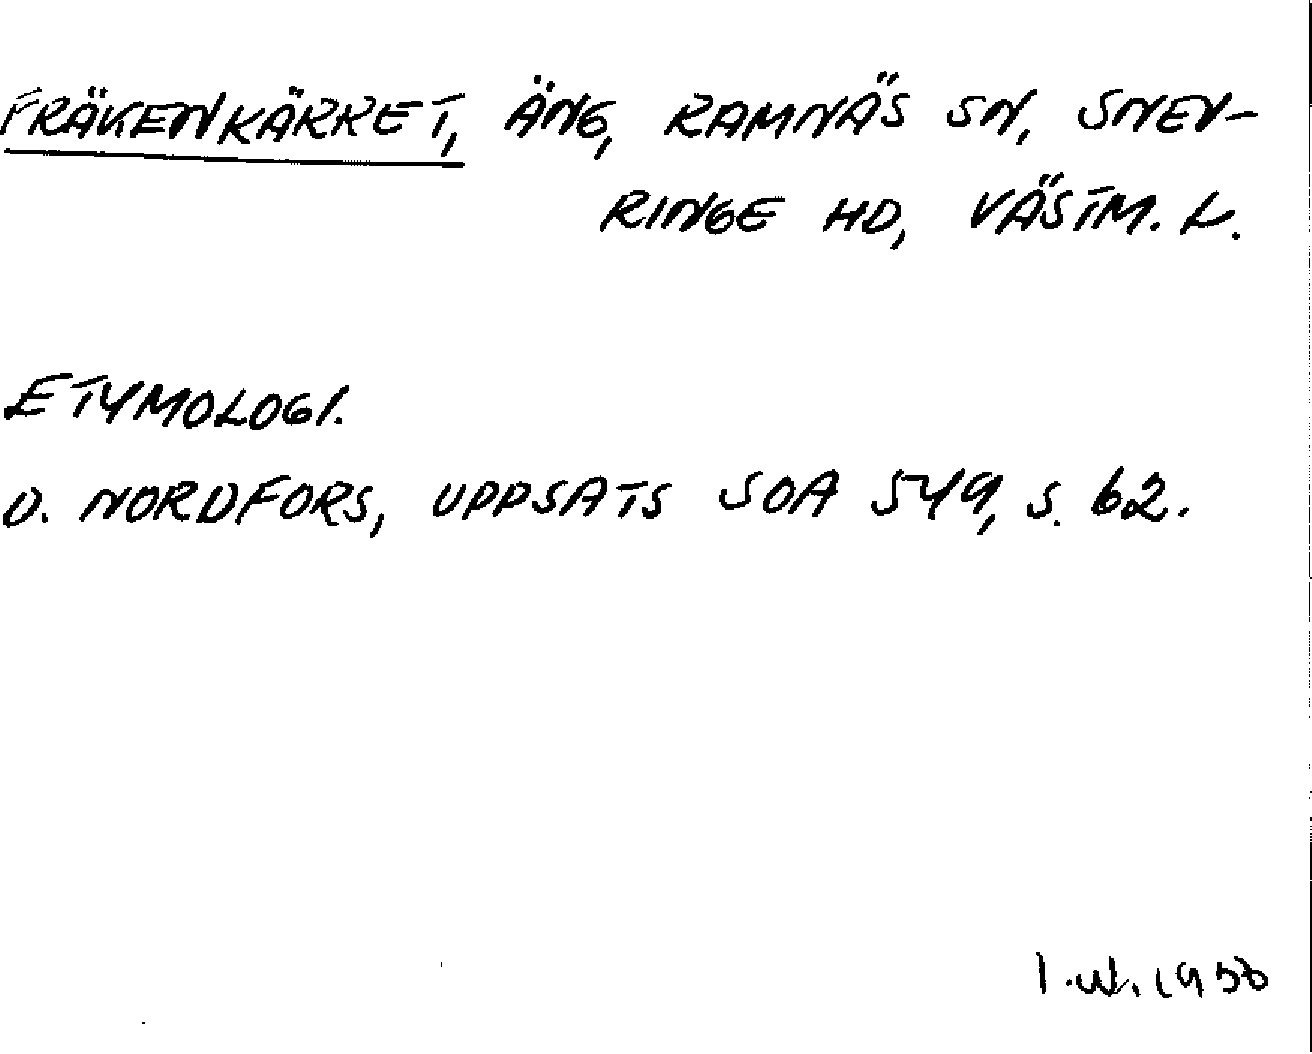 FRÄKENKÄRRET, ÄNG, RAMNÄS SN, SNEV-
RINGE HD, VÄSTM. L.
ETYMOLOGI.
O. NORDFORS, UPPSATS SOA 549, S. 62.
I.W. 1950